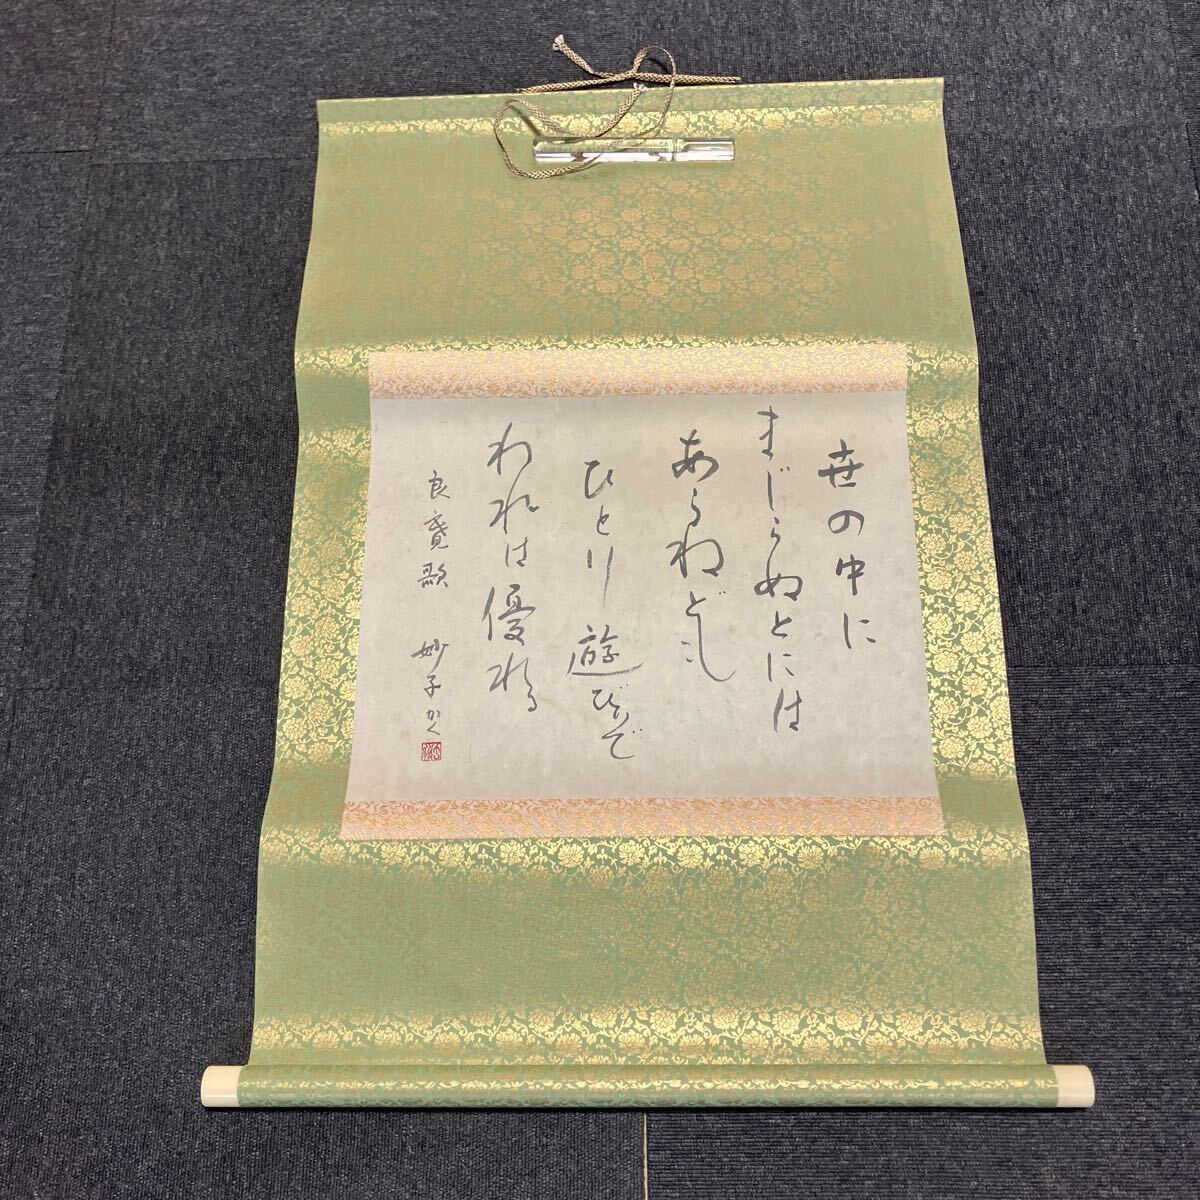 世の中に
まじらぬとには
あらねども
ひとり遊びぞ
われは優れる
良寛歌 妙子かく